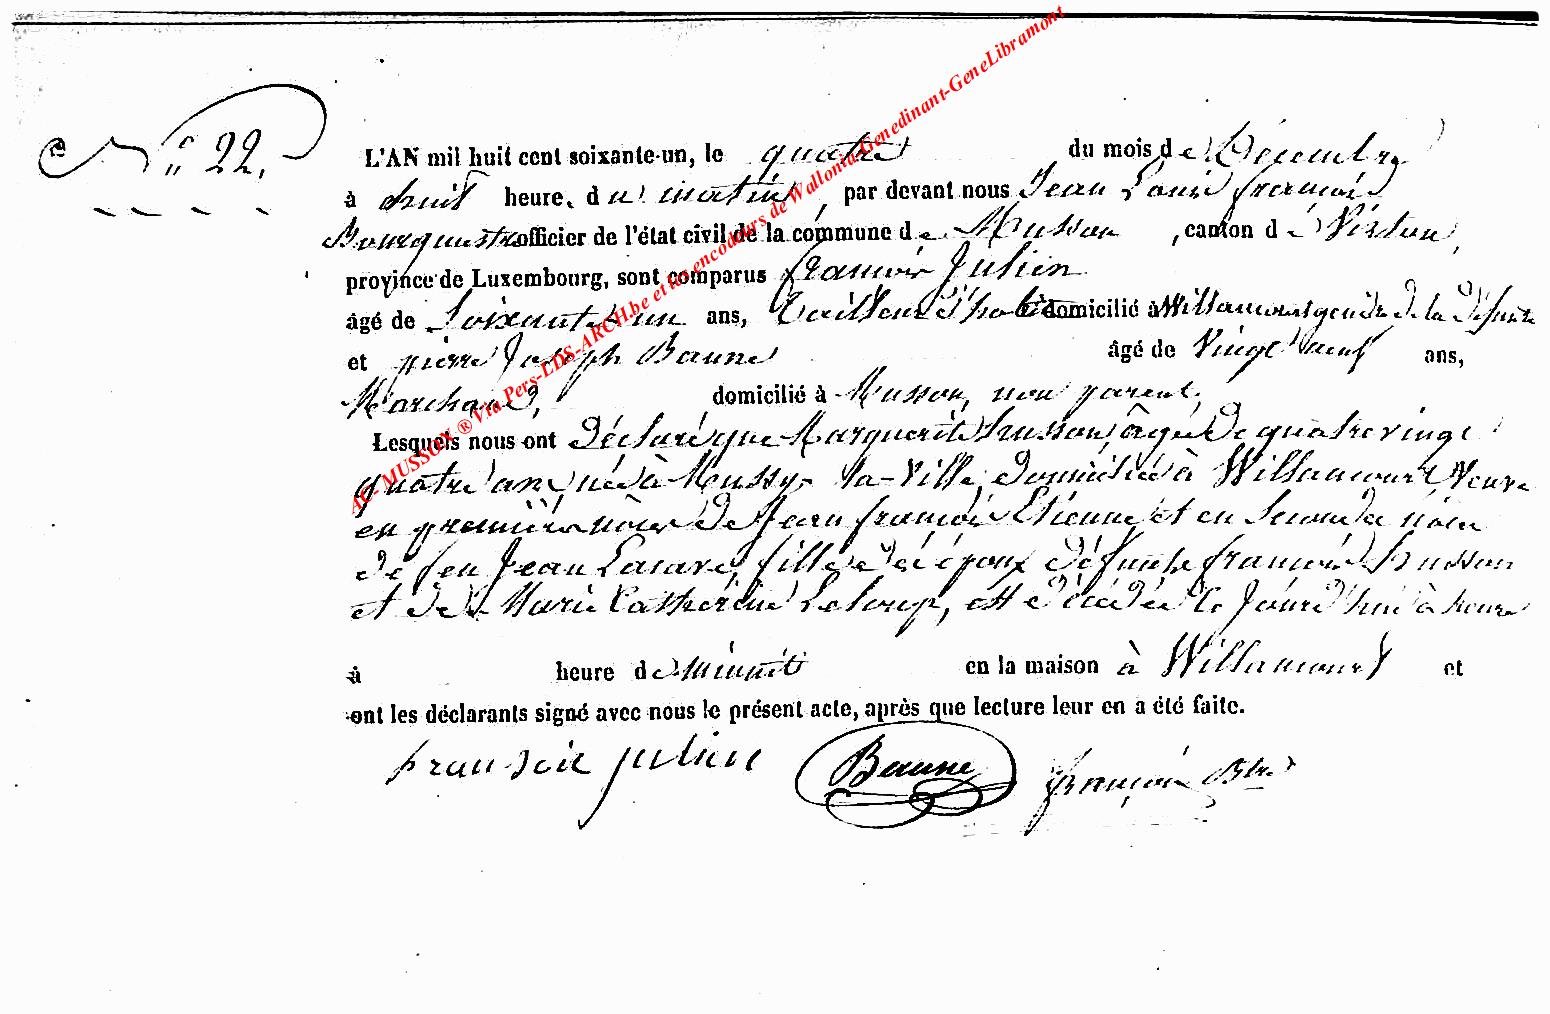 N° 22.
L'AN mil huit cent soixante-un, le quatre du mois de Décembre
à huit heure, du matin, par devant nous Jean Louis françois
officier de l'état civil de la commune de Musson, canton de Virton,
province de Luxembourg, sont comparus françois Julien
âgé de Soixante un ans, tailleur d'habits domicilié à Willancourt gendre de la défunte
et pierre Joseph Baune âgé de Vingt neuf ans,
Marchand, domicilié à Musson, non parent,
Lesquels nous ont Déclaré que Marguerite husson, âgée de quatre vingt
quatre ans, née à Mussy-la-Ville, domiciliée à Willancourt, Veuve
en première nôce de Jean françois Etienne et en Seconde nôce
de feu Jean fille de époux défunts françois husson
et de Marie Catherine Leloup, est décédée le Jourd'hui à heure
à heure de minuit en la maison à Willancourt et
ont les déclarants signé avec nous le présent acte, après que lecture leur en a été faite.
fransoie julien Baune françois
AC-MUSSON ® Via Pers-LDS-ARCH.be et les encodeurs de Wallonia-Genedinant-GeneLibramont